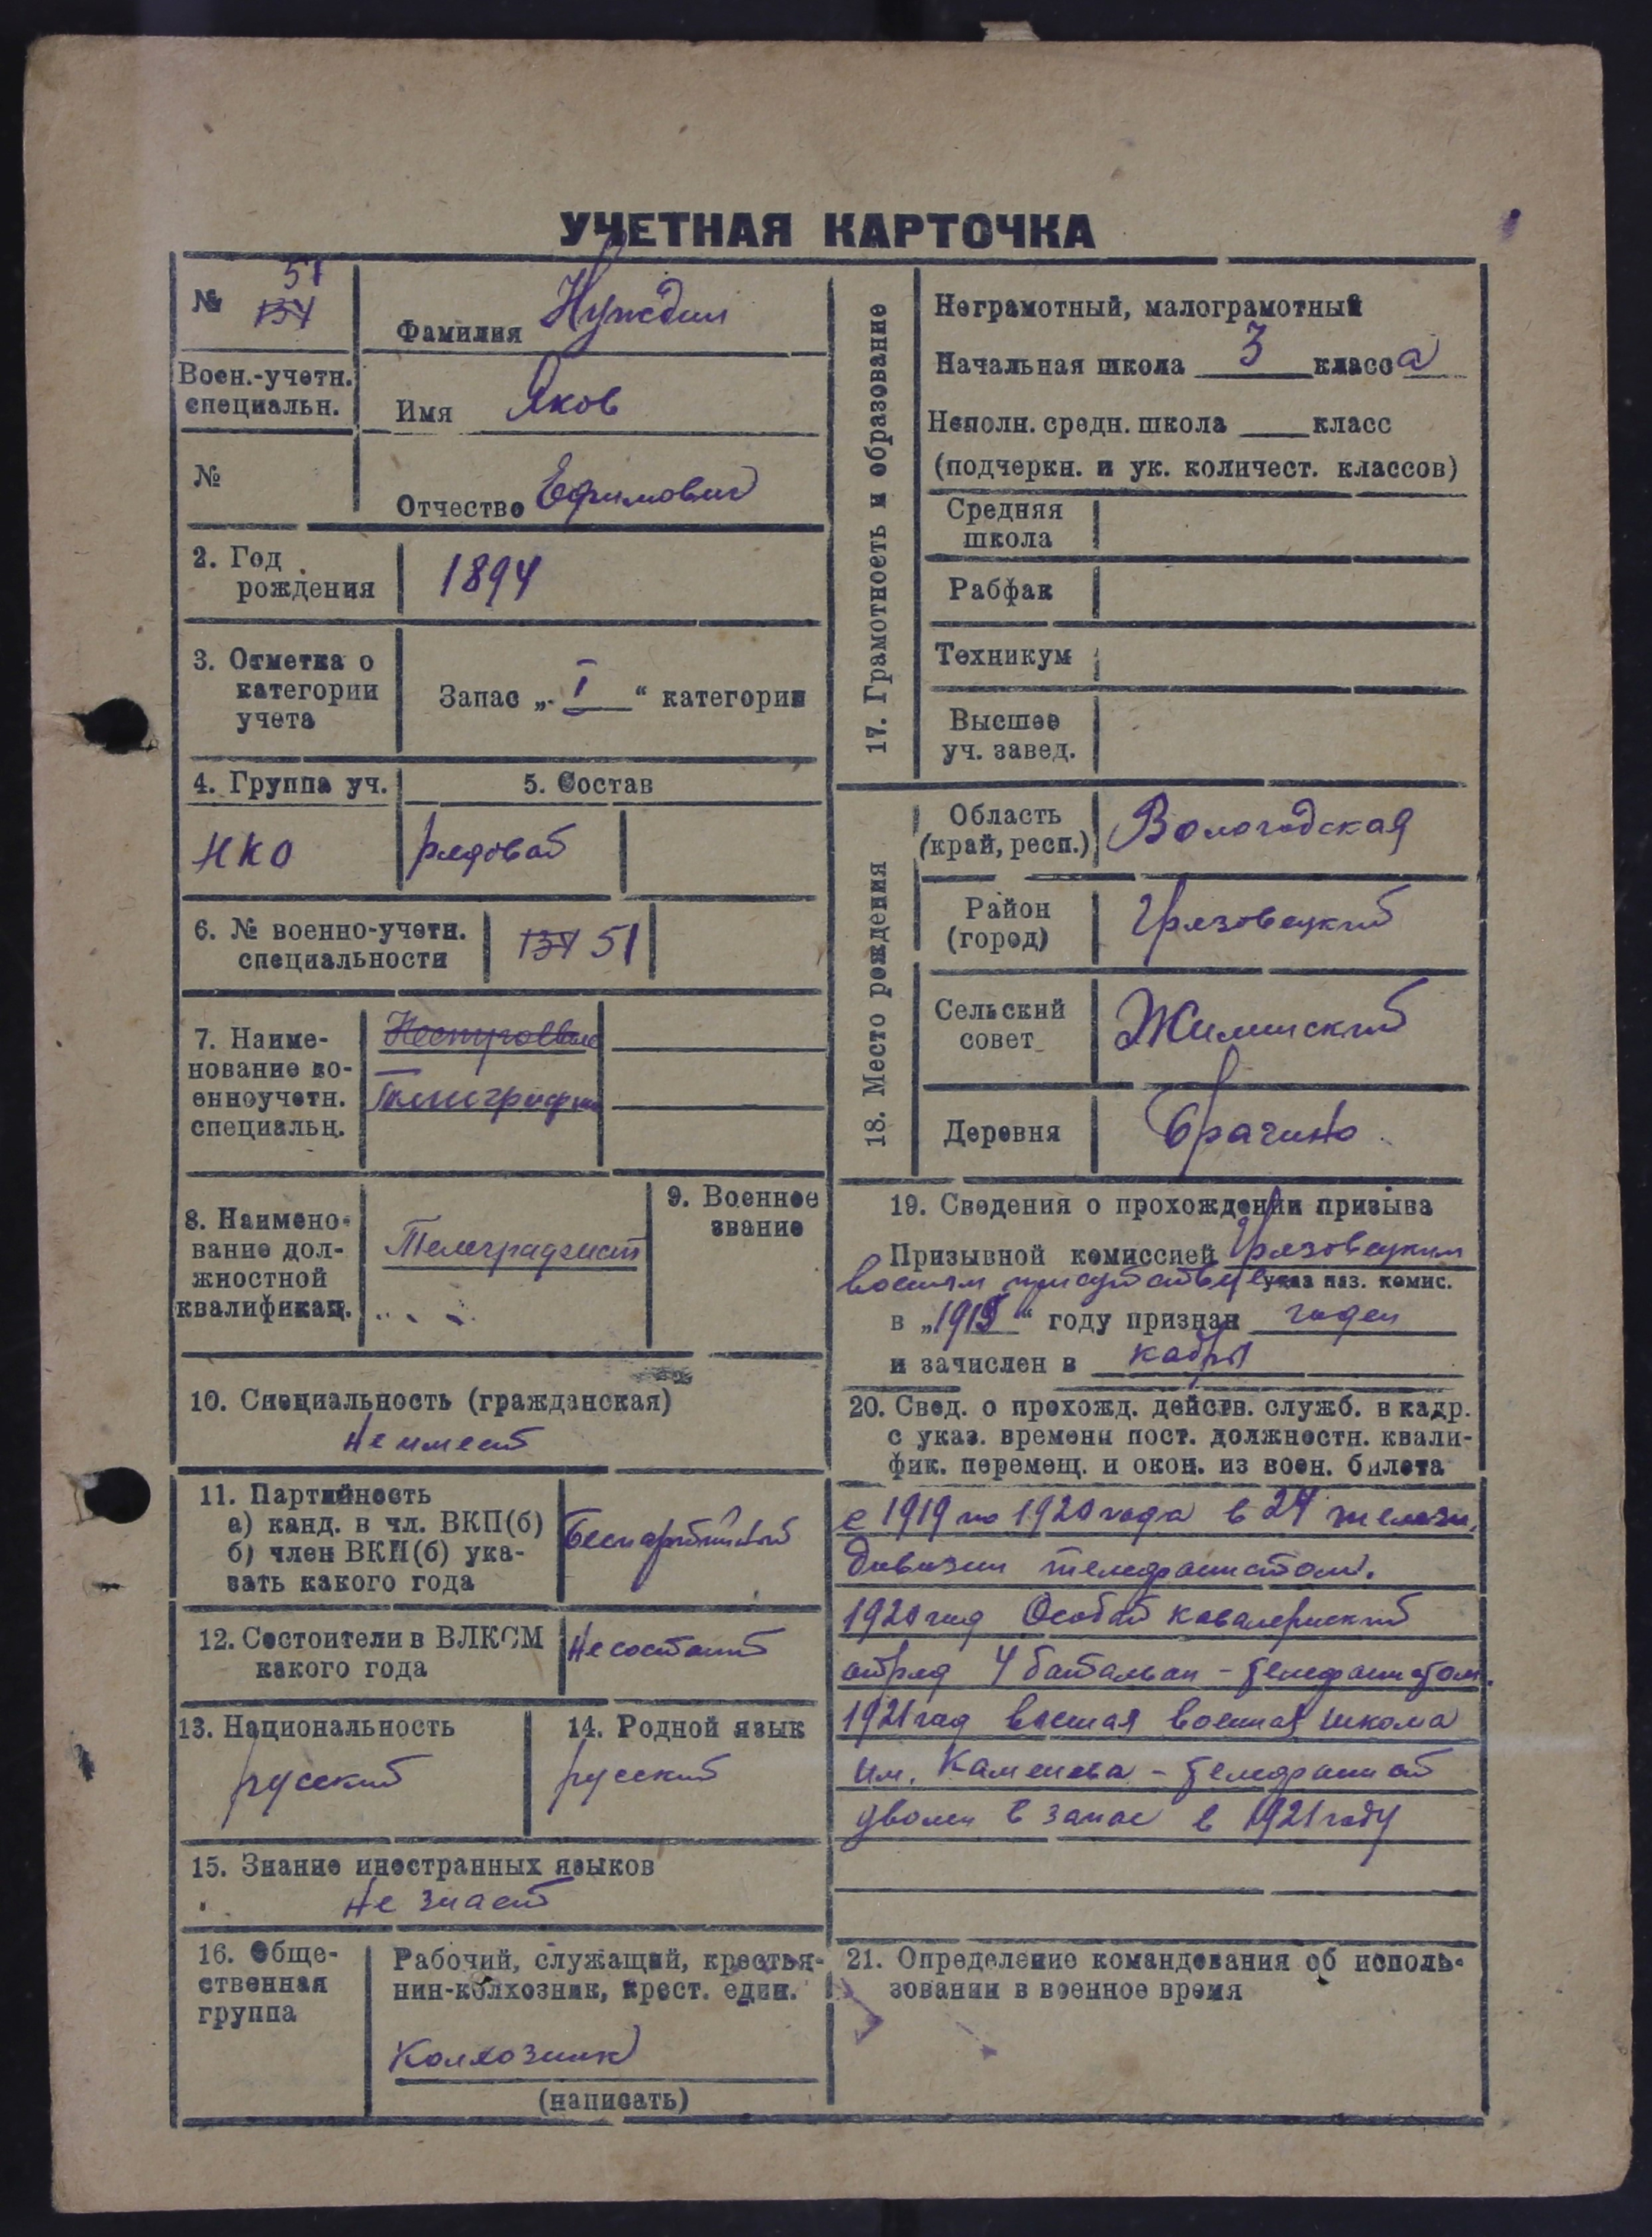 УЧЕТНАЯ КАРТОЧКА
№ 51
134
Воен.-учетн.
специальн.
№
Фамилия Нуждин
Имя Яков
Отчество Ефимович
2. Год
рождения
1894
3. Отметка о
категории
учета
Запас „ I “ категории
4. Группа уч.
НКО
5. Состав
рядовой
6. № военно-учетн.
специальности
134 51
7. Наиме-
нование во-
енноучетн.
специальн.
8. Наимено-
вание дол-
жностной
квалификац.
Телеграфист
9. Военное
звание
10. Специальность (гражданская)
Не имеет
11. Партийность
а) канд. в чл. ВКП(б)
б) член ВКП(б) ука-
зать какого года
Беспартийный
12. Состоители в ВЛКСМ
какого года
Не состоит
13. Национальность
русский
14. Родной язык
русский
15. Знание иностранных языков
Не знает
16. Обще-
ственная
группа
Рабочий, служащий, крестья-
нин-колхозник, крест. един.
Колхозник
(написать)
17. Грамотность и образование
Неграмотный, малограмотный
Начальная школа 3 класса
Неполн. средн. школа ___ класс
(подчеркн. и ук. количест. классов)
Средняя
школа
Рабфак
Техникум
Высшее
уч. завед.
18. Место рождения
Область
(край, респ.)
Вологодская
Район
(город)
Грязовецкий
Сельский
совет
Жилинский
Деревня
Брагино
19. Сведения о прохождении призыва
Призывной комиссией Грязовецким
указ наз. комис.
воиным присутствием
в „1915“ году признан годен
и зачислен в кадры
20. Свед. о прохожд. действ. служб. в кадр.
с указ. времени пост. должностн. квали-
фик. перемещ. и окон. из воен. билета
с 1919 по 1920 года в 24 железн.
дивизии телефонистом.
1920 год Особый кавалериский
отряд 4 батальон - телефонистом.
1921 год военная школа
им. Каменева - телефонист
уволен в запас в 1921 году
21. Определение командования об исполь-
зовании в военное время